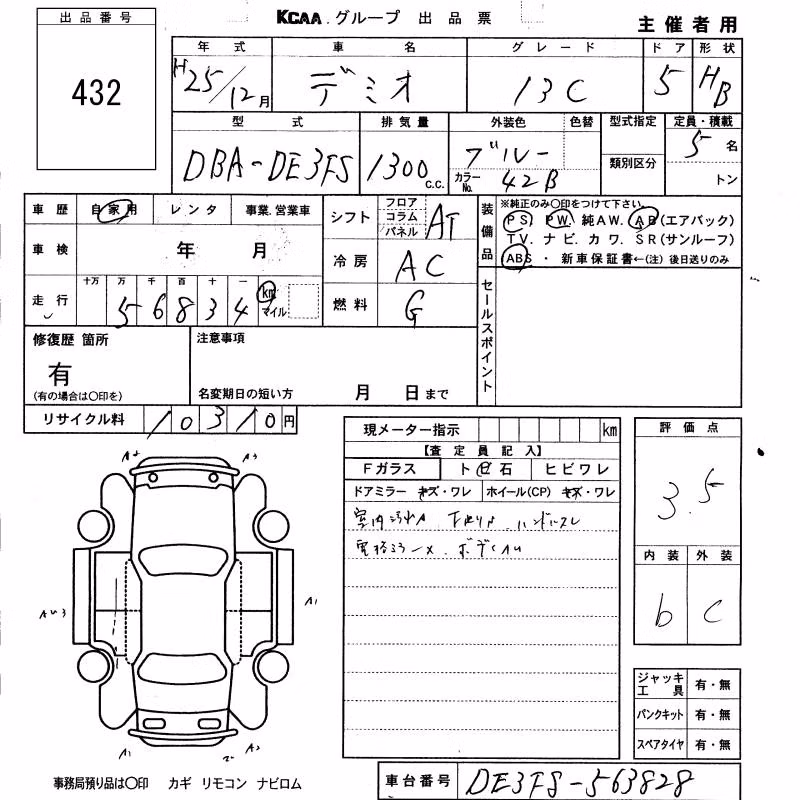 出品番号
432
KCAA グループ 出品票
主催者用
年式 車名 グレード ドア 形状
H25/12月 デミオ 13C 5 HB
型式 排気量 外装色 色替 型式指定 定員・積載
DBA-DE3FS 1300 C.C. ブルー 5名
カラーNo. 42B 類別区分 トン
車歴 自家用 レンタ 事業.営業車
車検 年 月
走行 十万 万 千 百 十 一
5 6 8 3 4 km マイル
シフト フロア コラム パネル AT
冷房 AC
燃料 G
装備品
※純正のみ〇印をつけて下さい
PS. PW. 純AW. AB(エアバック)
TV. ナビ. カワ. SR(サンルーフ)
ABS ・ 新車保証書←(注) 後日送りのみ
セールスポイント
修復歴 箇所
有
(有の場合は〇印を)
注意事項
名変期日の短い方 月 日まで
リサイクル料 10310円
現メーター指示 km
【査定員記入】
Fガラス ト凹石 ヒビワレ
ドアミラー キズ・ワレ ホイール(CP) キズ・ワレ
室内
評価点
3.5
内装 外装
b C
A2 A3
A1
A1 A2
ジャッキ工具 有・無
パンクキット 有・無
スペアタイヤ 有・無
事務局預り品は〇印 カギ リモコン ナビロム
車台番号 DE3FS-563828